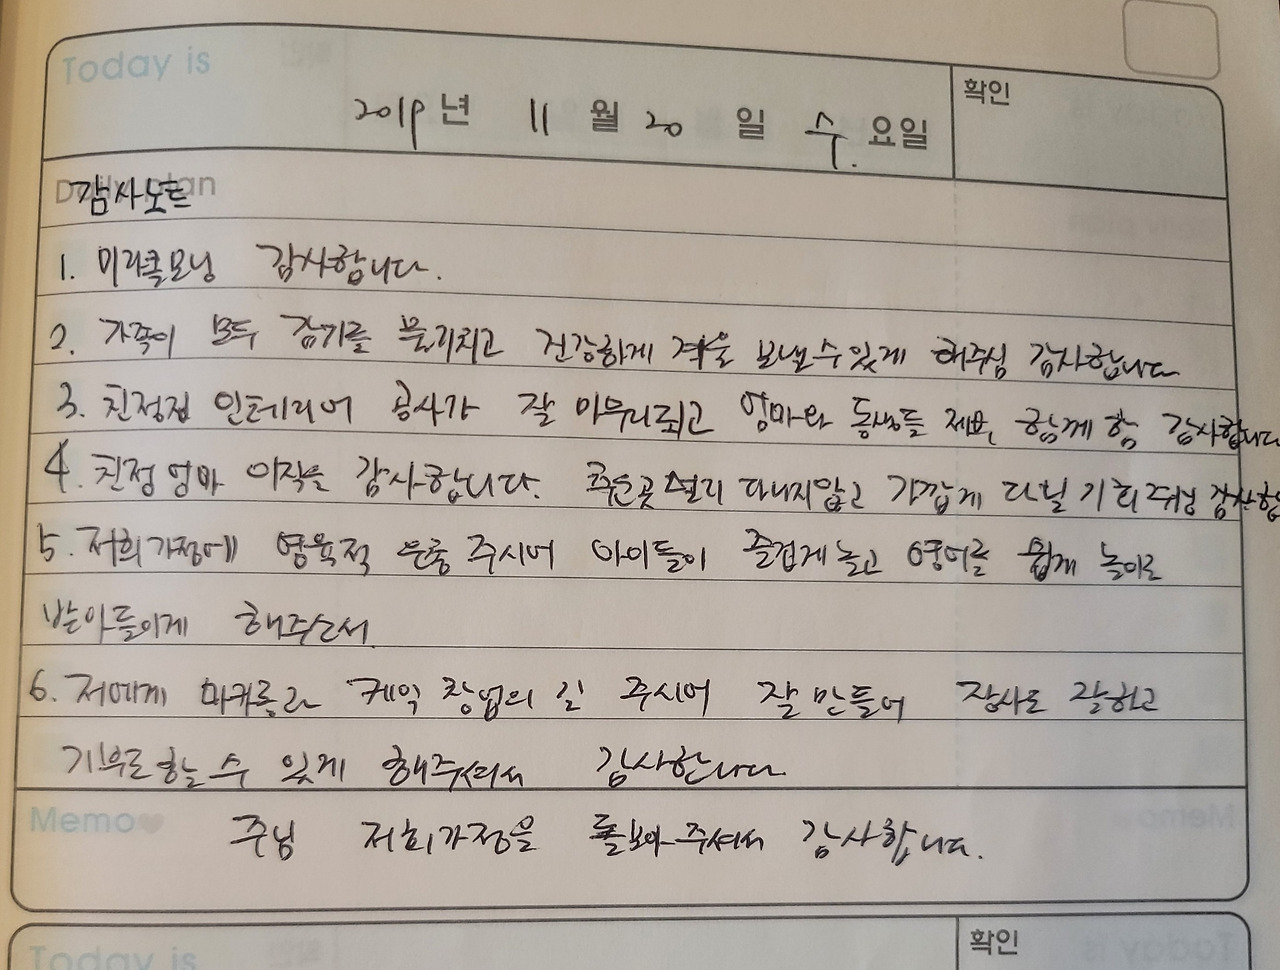 Today is
확인
2019년 11월 20일 수.요일
Daily plan
감사노트
1. 미라클모닝 감사합니다.
2. 가족이 모두 감기를 물리치고 건강하게 겨울 보낼수있게 해주심 감사합니다
3. 친정집 인테리어 공사가 잘 마무리되고 엄마와 동생들 제부, 함께 함 감사합니다
4. 친정엄마 이직을 감사합니다. 추운곳 멀리 다니지않고 가깝게 다닐 기회 주심 감사합
5. 저희가정에 영육적 은총 주시어 아이들이 즐겁게 놀고 영어를 쉽게 놀이로
받아들이게 해주소서.
6. 저에게 마카롱과 케익 창업의 길 주시어 잘 만들어 장사도 잘하고
기부도 할 수 있게 해주셔서 감사합니다
Memo
주님 저희가정을 돌보아주셔서 감사합니다.
확인
Today is